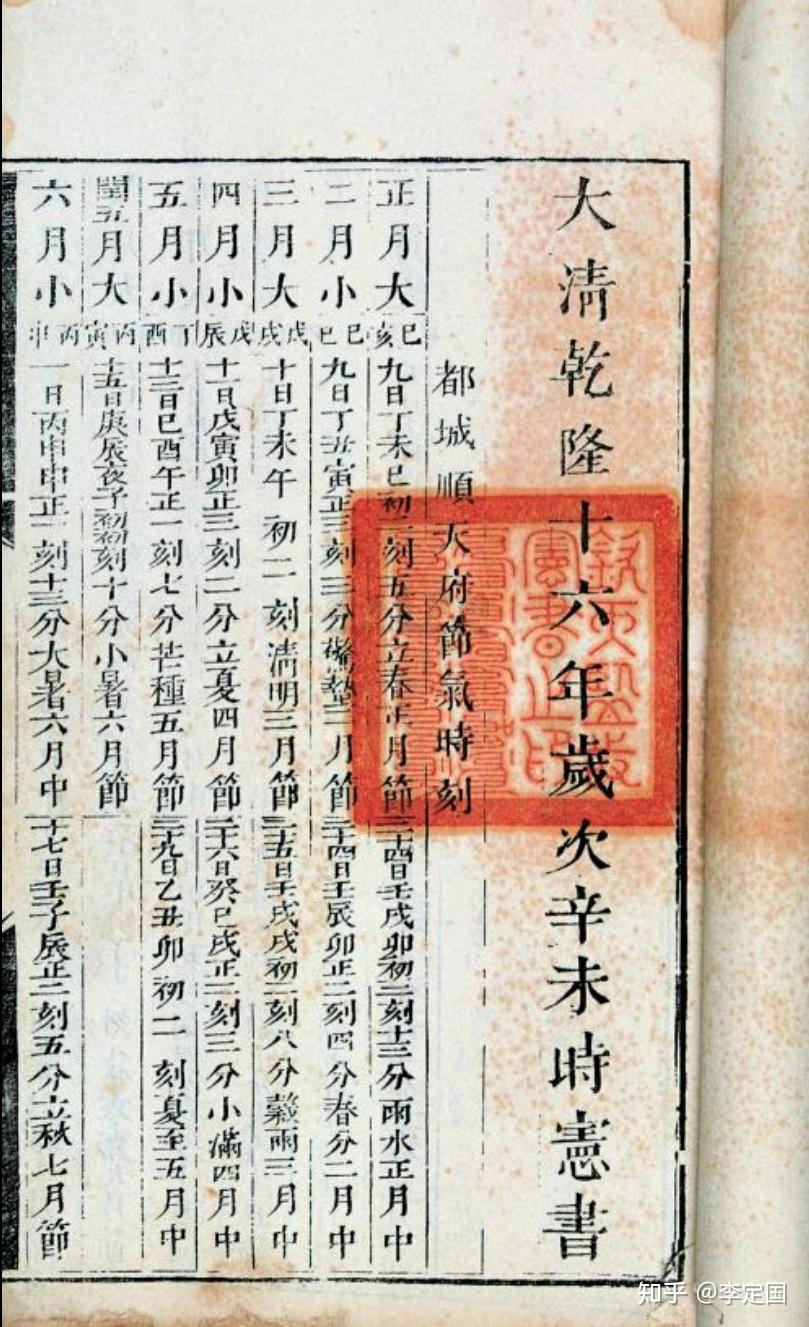 大清乾隆十六年歲次辛未時憲書
都城順天府節氣時刻
正月大 己亥 九日丁未巳初二刻五分立春正月節 二十四日壬戌卯初三刻十三分雨水正月中
二月小 己巳 九日丁丑寅正三刻三分驚蟄二月節 二十四日壬辰卯正二刻四分春分二月中
三月大 戊戌 十日丁未午初二刻清明三月節 二十五日壬戌戌初二刻八分穀雨三月中
四月小 戊辰 十一日戊寅卯正三刻二分立夏四月節 二十六日癸巳戌正二刻三分小滿四月中
五月小 丁酉 十三日己酉午正一刻七分芒種五月節 二十九日乙丑卯初二刻夏至五月中
閏五月大 丙寅 十五日庚辰夜子初初刻十分小暑六月節
六月小 丙申 一日丙申申正一刻十三分大暑六月中 十七日壬子辰正二刻五分立秋七月節
欽天監時
憲書之印
知乎 @李定国